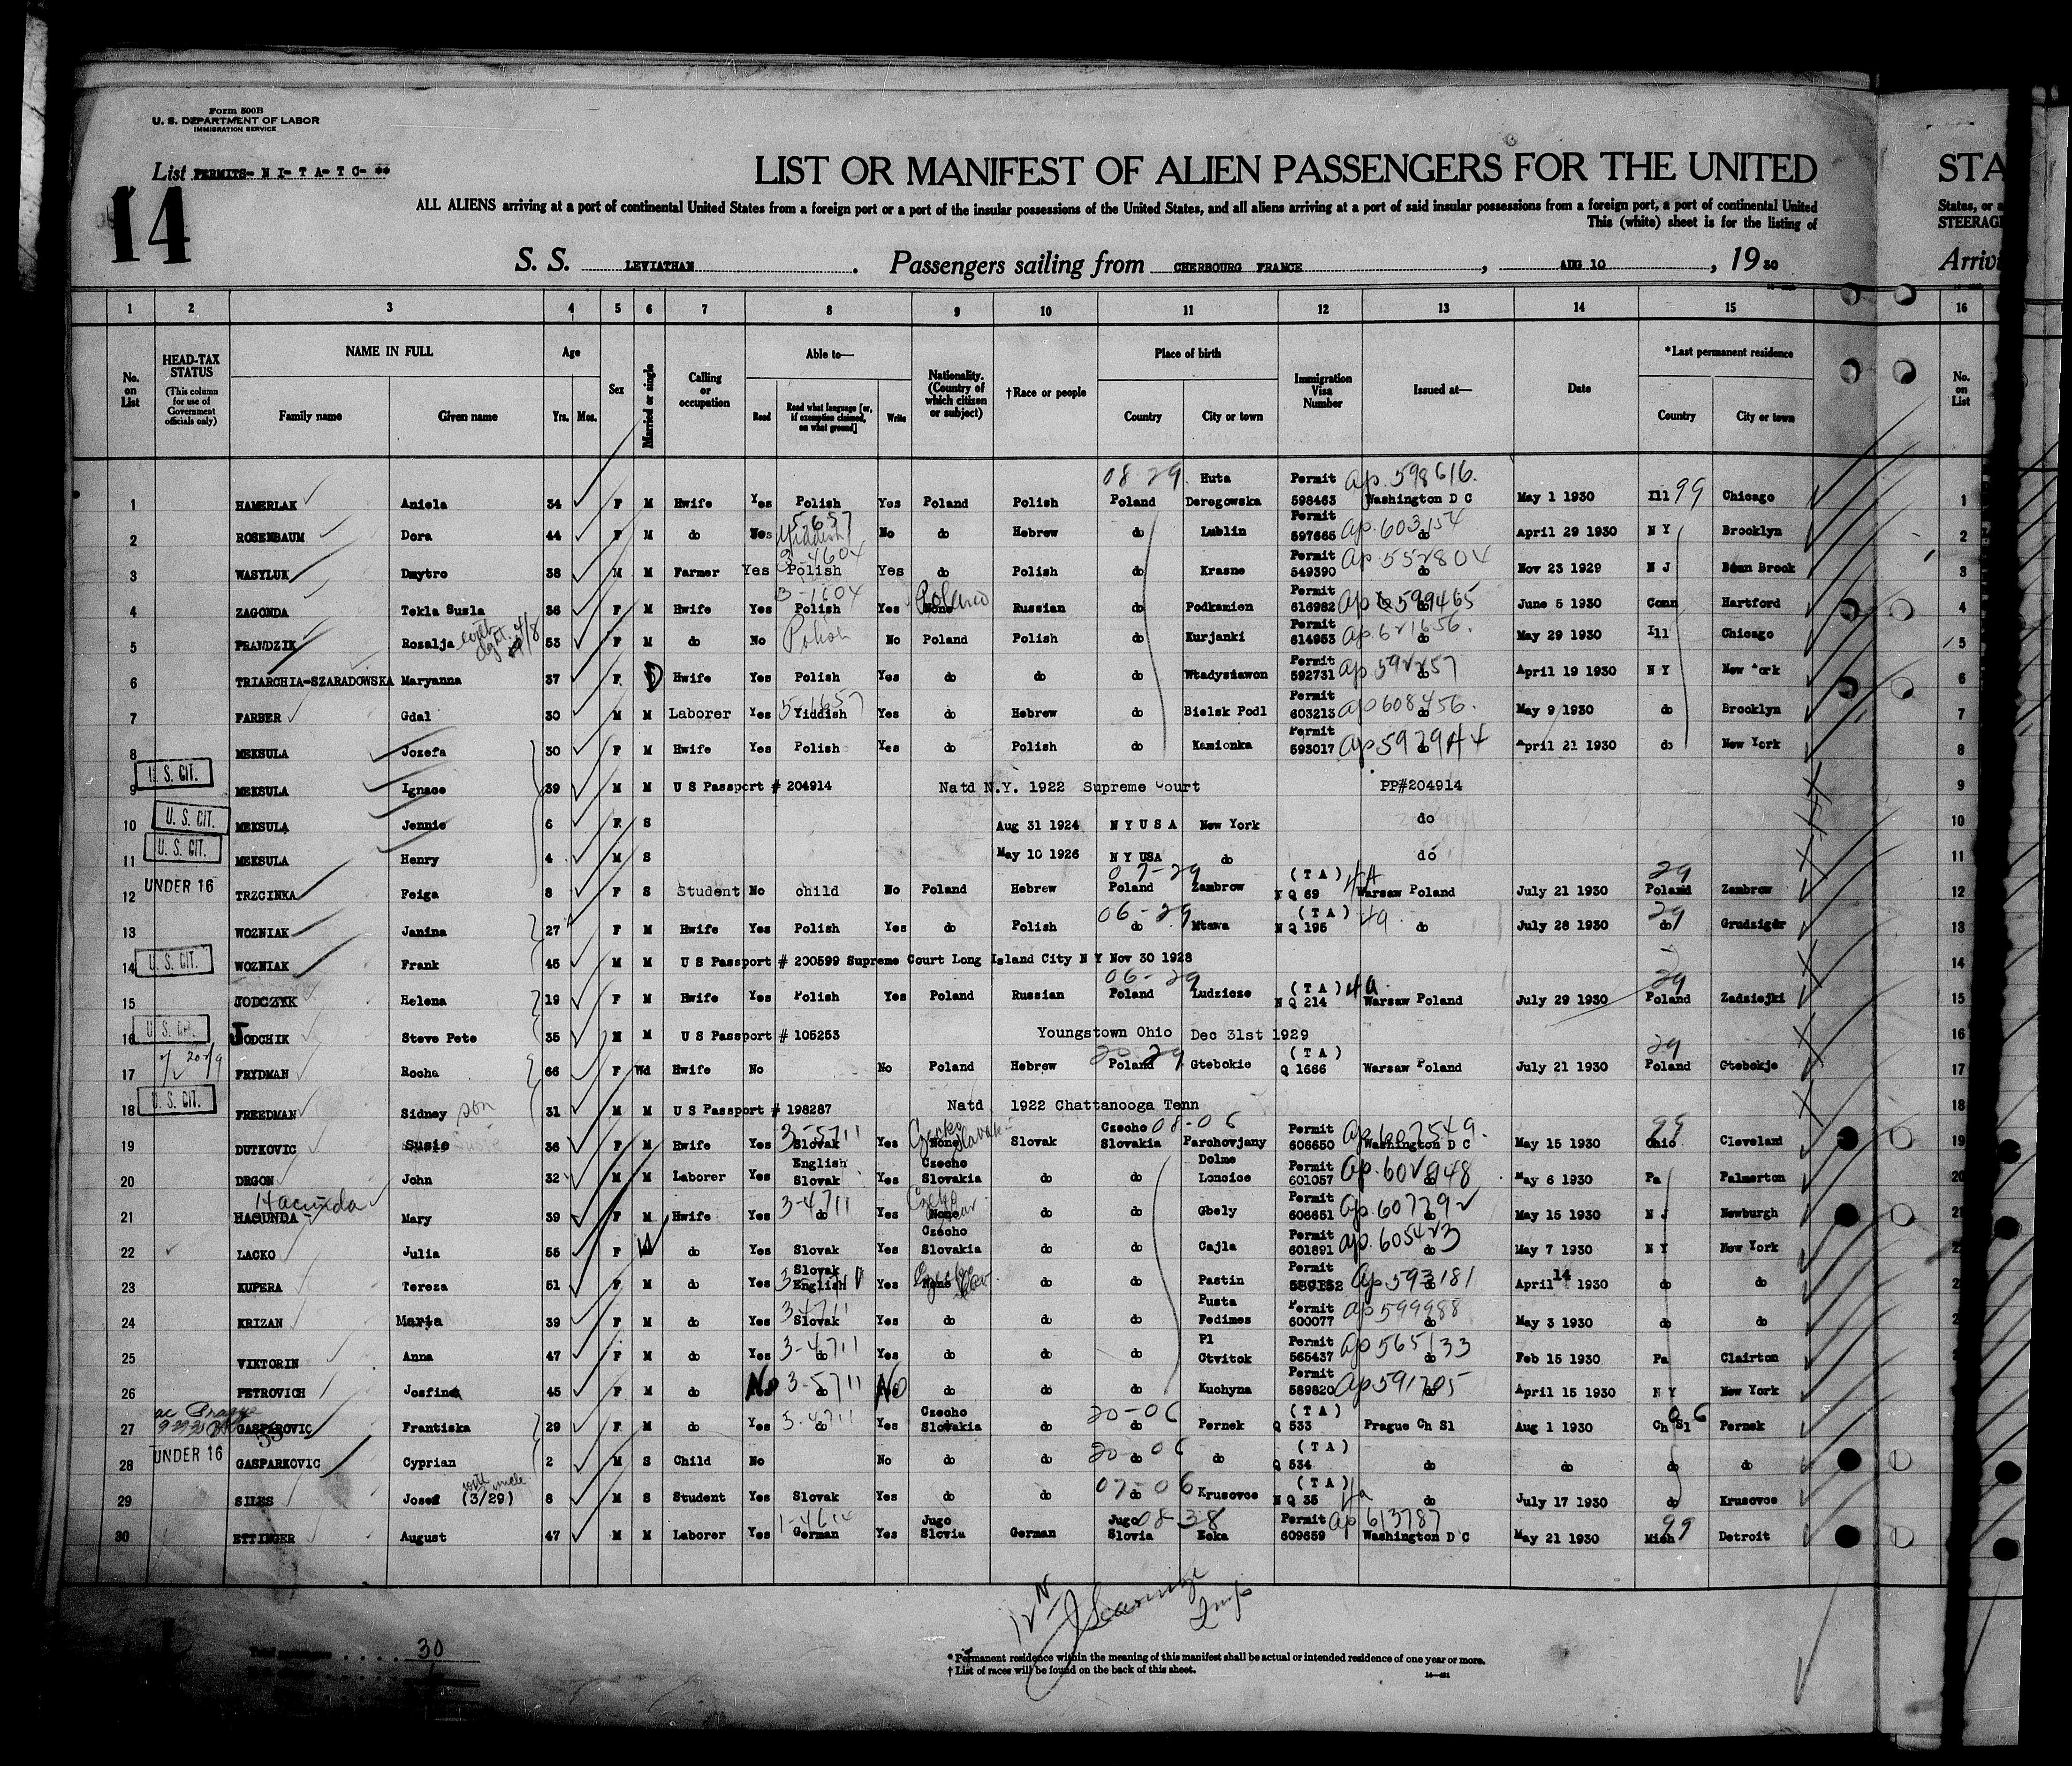 Form 500B
U. S. DEPARTMENT OF LABOR
IMMIGRATION SERVICE
List PERMITS- N I- T A- T C- **
14
LIST OR MANIFEST OF ALIEN PASSENGERS FOR THE UNITED
STA
ALL ALIENS arriving at a port of continental United States from a foreign port or a port of the insular possessions of the United States, and all aliens arriving at a port of said insular possessions from a foreign port, a port of continental United
States, or a
This (white) sheet is for the listing of
STEERAG
S. S. LEVIATHAN . Passengers sailing from CHERBOURG FRANCE , AUG 10 , 19 30
Arrivi
1 2 3 4 5 6 7 8 9 10 11 12 13 14 15 16
No. on List
HEAD-TAX STATUS (This column for use of Government officials only)
NAME IN FULL Family name Given name
Age Yrs. Mos.
Sex
Married or single
Calling or occupation
Able to— Read Read what language [or, if exemption claimed, on what ground] Write
Nationality. (Country of which citizen or subject)
†Race or people
Place of birth Country City or town
Immigration Visa Number
Issued at—
Date
*Last permanent residence Country City or town
No. on List
1 HAMERLAK Aniela 34 F M Hwife Yes Polish Yes Poland Polish 08-29 Poland Huta Deregowska Permit 598463 Ap. 598616. Washington D C May 1 1930 Ill 99 Chicago 1
2 ROSENBAUM Dora 44 F M do 5-657 Yiddish No do Hebrew do Lublin Permit 597665 Ap. 603154 do April 29 1930 N Y Brooklyn 2
3 WASYLUK Dmytro 38 M M Farmer Yes 3-4604 Polish Yes do Polish do Krasne Permit 549390 Ap 552804 Nov 23 1929 N J Brook 3
4 ZAGONDA Tekla Susla 36 F M Hwife Yes 3-1604 Polish Yes None Poland Russian do Podkamien Permit 616982 Ap 599465 do June 5 1930 Conn Hartford 4
5 PRAWDZIK Rozalja with 4/8 53 F M do No Polish No Poland Polish do Kurjanki Permit 614953 Ap. 621656. May 29 1930 Ill Chicago 5
6 TRIARCHIA-SZARADOWSKA Maryanna 37 F D Hwife Yes Polish Yes do do do Wtadysiawon Permit 592731 Ap 592257 do April 19 1930 N Y New York 6
7 FARBER Gdal 30 M M Laborer Yes 5-1657 Yiddish Yes do Hebrew do Bielsk Podl Permit 603213 ap 608456. do May 9 1930 do Brooklyn 7
8 MEKSULA Jozefa 30 F M Hwife Yes Polish Yes do Polish do Kamionka Permit 593017 Ap 592944 do April 21 1930 do New York 8
U. S. CIT.
9 MEKSULA Ignace 39 M M U S Passport # 204914 Natd N.Y. 1922 Supreme Court PP#204914 9
U. S. CIT.
10 MEKSULA Jennie 6 F S Aug 31 1924 N Y U S A New York do 10
U. S. CIT.
11 MEKSULA Henry 4 M S May 10 1926 N Y USA do do 11
UNDER 16
12 TRZCINKA Feiga 8 F S Student No child No Poland Hebrew 07-29 Poland Zambrow (TA) N Q 69 4A Warsaw Poland July 21 1930 29 Poland Zambrow 12
13 WOZNIAK Janina 27 F M Hwife Yes Polish Yes do Polish 06-29 do Mtawa (TA) N Q 195 4a. do July 28 1930 29 do 13
U. S. CIT.
14 WOZNIAK Frank 45 M M U S Passport # 200599 Supreme Court Long Island City N Y Nov 30 1928 14
15 JODCZYK Helena 19 F M Hwife Yes Polish Yes Poland Russian 06-29 Poland Ludzicze (TA) N Q 214 4a. Warsaw Poland July 29 1930 29 Poland Zadziejki 15
U. S. CIT.
16 JODCHIK Steve Pete 35 M M U S Passport # 105253 Youngstown Ohio Dec 31st 1929 16
17 FRYDMAN Rocha 66 F Wd Hwife No No Poland Hebrew 20-29 Poland Gtebokie (TA) Q 1666 Warsaw Poland July 21 1930 29 Poland Gtebokje 17
U. S. CIT.
18 FREEDMAN Sidney son 31 M M U S Passport # 198287 Natd 1922 Chattanooga Tenn 18
19 DUTKOVIC Susie 36 F M Hwife Yes 3-5711 Slovak Yes None Czeko Slovak Slovak Czecho Slovakia 08-06 Parchovjany Permit 606650 Ap 607549. Washington D C May 15 1930 99 Ohio Cleveland 19
20 DRGON John 32 M M Laborer Yes English Slovak Yes Czecho Slovakia do do Dolme Loncice Permit 601057 Ap. 602948 do May 6 1930 Pa Palmerton 20
21 HACUNDA Hacunda Mary 39 F M Hwife Yes 3-4711 do Yes None do do Gbely Permit 606651 Ap. 607792 do May 15 1930 N J Newburgh 21
22 LACKO Julia 55 F W do Yes Slovak Yes Czecho Slovakia do do Cajla Permit 601891 Ap. 605423 do May 7 1930 N Y New York
23 KUPERA Tereza 51 F M do Yes Slovak English Yes None do do Pastin Permit Ap 593181 do April 14 1930 do do
24 KRIZAN Maria 39 F M do Yes 3-4711 Slovak Yes do do do Pusta Fedimes Permit 600077 ap 599988 do May 3 1930 do do
25 VIKTORIN Anna 47 F M do Yes 3-4711 do Yes do do do Pl Ctvitok Permit 565437 Ap 565133 do Feb 15 1930 Pa Clairton
26 PETROVICH Josfina 45 F M do No 3-5711 do No do do do Kuchyna Permit 589820 Ap 591705 do April 15 1930 N Y New York
27 GASPAROVIC Frantiska 29 F M do Yes 3-4711 do Yes Czecho Slovakia do 20-06 do Pernek (TA) Q 533 Prague Ch Sl Aug 1 1930 06 Ch Sl Pernek
UNDER 16
28 GASPARKOVIC Cyprian 2 M S Child No No do do 20-06 do do (TA) Q 534 do do do do
29 SILES Josef (3/29) with uncle 8 M S Student Yes Slovak Yes do do 07-06 do Krusovce (TA) N Q 35 4a do July 17 1930 do Krusovce
30 ETTINGER August 47 M M Laborer Yes 1-4614 German Yes Jugo Slovia German Jugo Slovia 08-38 Permit 609659 Ap 613787 Washington D C May 21 1930 99 Mich Detroit
Total passengers . . . . 30
* Permanent residence within the meaning of this manifest shall be actual or intended residence of one year or more.
† List of races will be found on the back of this sheet.